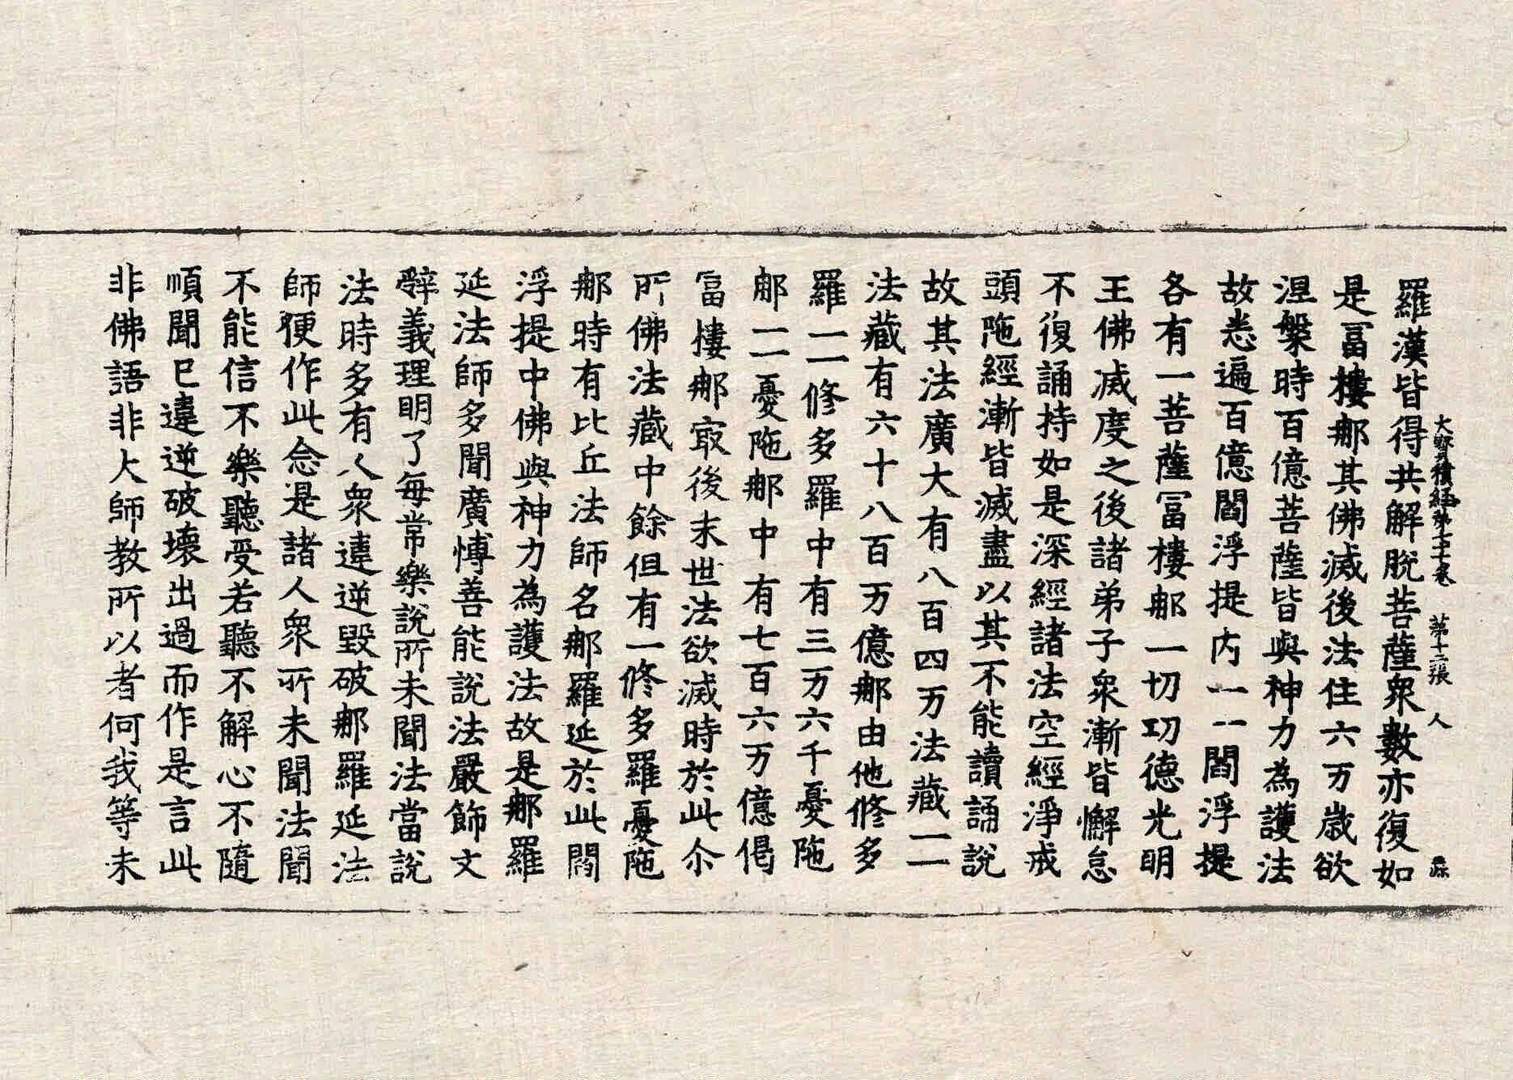 大寳積經第七十七卷 第十二張 人
羅漢皆得共解脫菩薩衆數亦復如
是冨樓那其佛滅後法住六万歳欲
涅槃時百億菩薩皆與神力為護法
故悉遍百億閻浮提内一一閻浮提
各有一菩薩冨樓那一切功德光明
王佛滅度之後諸弟子衆漸皆懈怠
不復誦持如是深經諸法空經淨戒
頭陁經漸皆滅盡以其不能讀誦說
故其法廣大有八百四万法藏一一
法藏有六十八百万億那由他修多
羅一一修多羅中有三万六千憂陁
那一一憂陁那中有七百六万億偈
冨樓那㝡後末世法欲滅時於此尒
所佛法藏中餘但有一修多羅憂陁
那時有比丘法師名那羅延於此閻
浮提中佛與神力為護法故是那羅
延法師多聞廣博善能說法嚴飾文
辭義理明了每常樂說所未聞法當說
法時多有人衆違逆毀破那羅延法
師便作此念是諸人衆所未聞法聞
不能信不樂聽受若聽不解心不隨
順聞已違逆破壞出過而作是言此
非佛語非大師教所以者何我等未